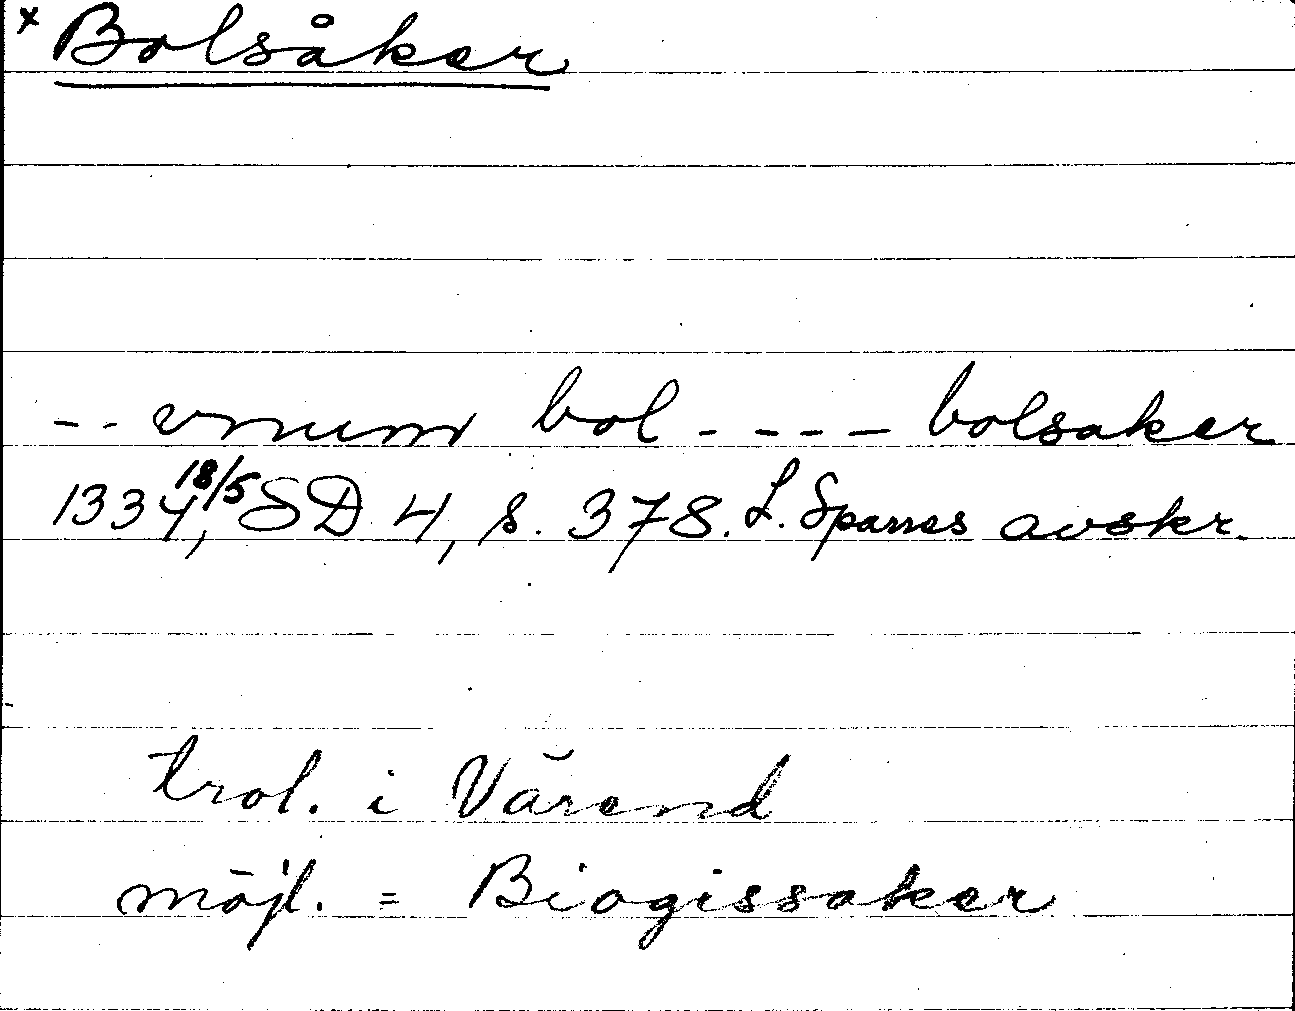 x Bolsåker
-- vnum bol ---- bolsaker
1334 18/5, SD 4, s. 378. L. Sparres avskr.
trol. i Värend
möjl. = Biogissaker